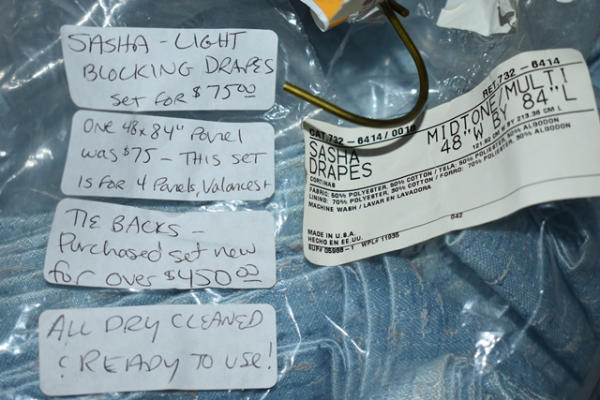 SASHA - LIGHT
BLOCKING DRAPES
SET FOR $7500
ONE 48x84" PANEL
WAS $75 - THIS SET
IS FOR 4 PANELS, VALANCES+
TIE BACKS -
PURCHASED SET NEW
FOR OVER $45000
ALL DRY CLEANED
& READY TO USE!
RET. 732-6414
CAT. 732-6414/0016
MIDTONE/MULTI
48"W BY 84"L
121.92 CM W BY 213.36 CM L
SASHA
DRAPES
CORTINAS
FABRIC: 50% POLYESTER, 50% COTTON / TELA: 50% POLIESTER, 50% ALGODON
LINING: 70% POLYESTER, 30% COTTON / FORRO: 70% POLIESTER, 30% ALGODON
MACHINE WASH / LAVAR EN LAVADORA
042
MADE IN U.S.A.
HECHO EN EE.UU.
SUP# 05988-1 WPL# 11935